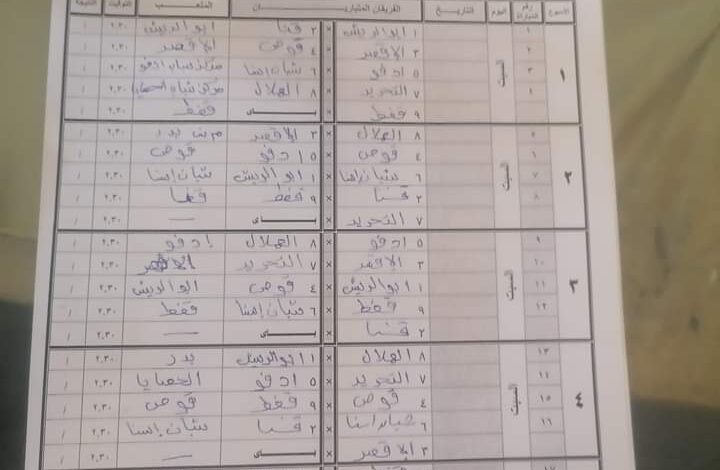 الأسبوع رقم المباراة اليوم التاريخ الفريقان المتباريان الملعب التوقيت النتيجة
١ السبت
١ ١ ابو الريش × ٢ قنا ابو الريش ٢.٣٠ /
٢ ٣ الاقصر × ٤ قوص الاقصر ٢.٣٠ /
٣ ٥ ادفو × ٦ شبان اسنا مركز شباب ادفو ٢.٣٠ /
٤ ٧ التحرير × ٨ الهلال مركز شباب ٢.٣٠ /
٩ قفط × بـــاى قفط ٢.٣٠ /
٢ السبت
٥ ٨ الهلال × ٣ الاقصر بدر ٢.٣٠ /
٦ ٤ قوص × ٥ ادفو قوص ٢.٣٠ /
٧ ٦ شبان اسنا × ١ ابو الريش شبان إسنا ٢.٣٠ /
٨ ٢ قنا × ٩ قفط قنا ٢.٣٠ /
٧ التحرير × بـــاى — ٢.٣٠ /
٣ السبت
٩ ٥ ادفو × ٨ الهلال إدفو ٢.٣٠ /
١٠ ٣ الاقصر × ٧ التحرير الاقصر ٢.٣٠ /
١١ ١ ابو الريش × ٤ قوص ابو الريش ٢.٣٠ /
١٢ ٩ قفط × ٦ شبان إسنا قفط ٢.٣٠ /
٢ قنا × بـــاى — ٢.٣٠ /
٤ السبت
١٣ ٨ الهلال × ١ ابو الريش بدر ٢.٣٠ /
١٤ ٧ التحرير × ٥ ادفو الحصايا ٢.٣٠ /
١٥ ٤ قوص × ٩ قفط قوص ٢.٣٠ /
١٦ ٦ شبان اسنا × ٢ قنا شبان إسنا ٢.٣٠ /
٣ الاقصر × بـــاى — ٢.٣٠ /
١٧